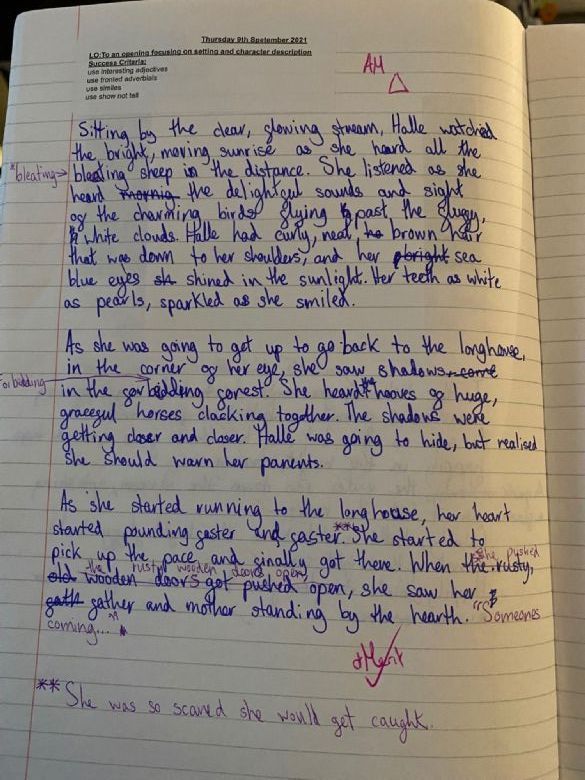 Thursday 9th Spetember 2021
LO:To an opening focusing on setting and character description
Success Criteria:
use interesting adjectives
use fronted adverbials
use similes
use show not tell
AM
Sitting by the clear, glowing stream, Halle watched
the bright, moving sunrise as she heard all the
*bleating→ bleating sheep in the distance. She listened as she
heard mornig the delightful sounds and sight
of the charming birds flying past, the fluffy,
white clouds. Halle had curly, neat, ha brown hair
that was down to her shoulders, and her bright sea
blue eyes sh shined in the sunlight. Her teeth as white
as pearls, sparkled as she smiled.
As she was going to get up to go back to the longhouse,
in the corner of her eye, she saw shadows come
forbidding in the forbidding forest. She heard the hooves of huge,
graceful horses clacking together. The shadows were
getting closer and closer. Halle was going to hide, but realised
she should warn her parents.
As she started running to the longhouse, her heart
started pounding faster and faster.** She started to
pick up the pace and finally got there. When she pushed the rusty,
the rusty wooden doors open
old wooden doors got pushed open, she saw her
fath father and mother standing by the hearth. "Someones
coming..."
Merit
** She was so scared she would get caught.